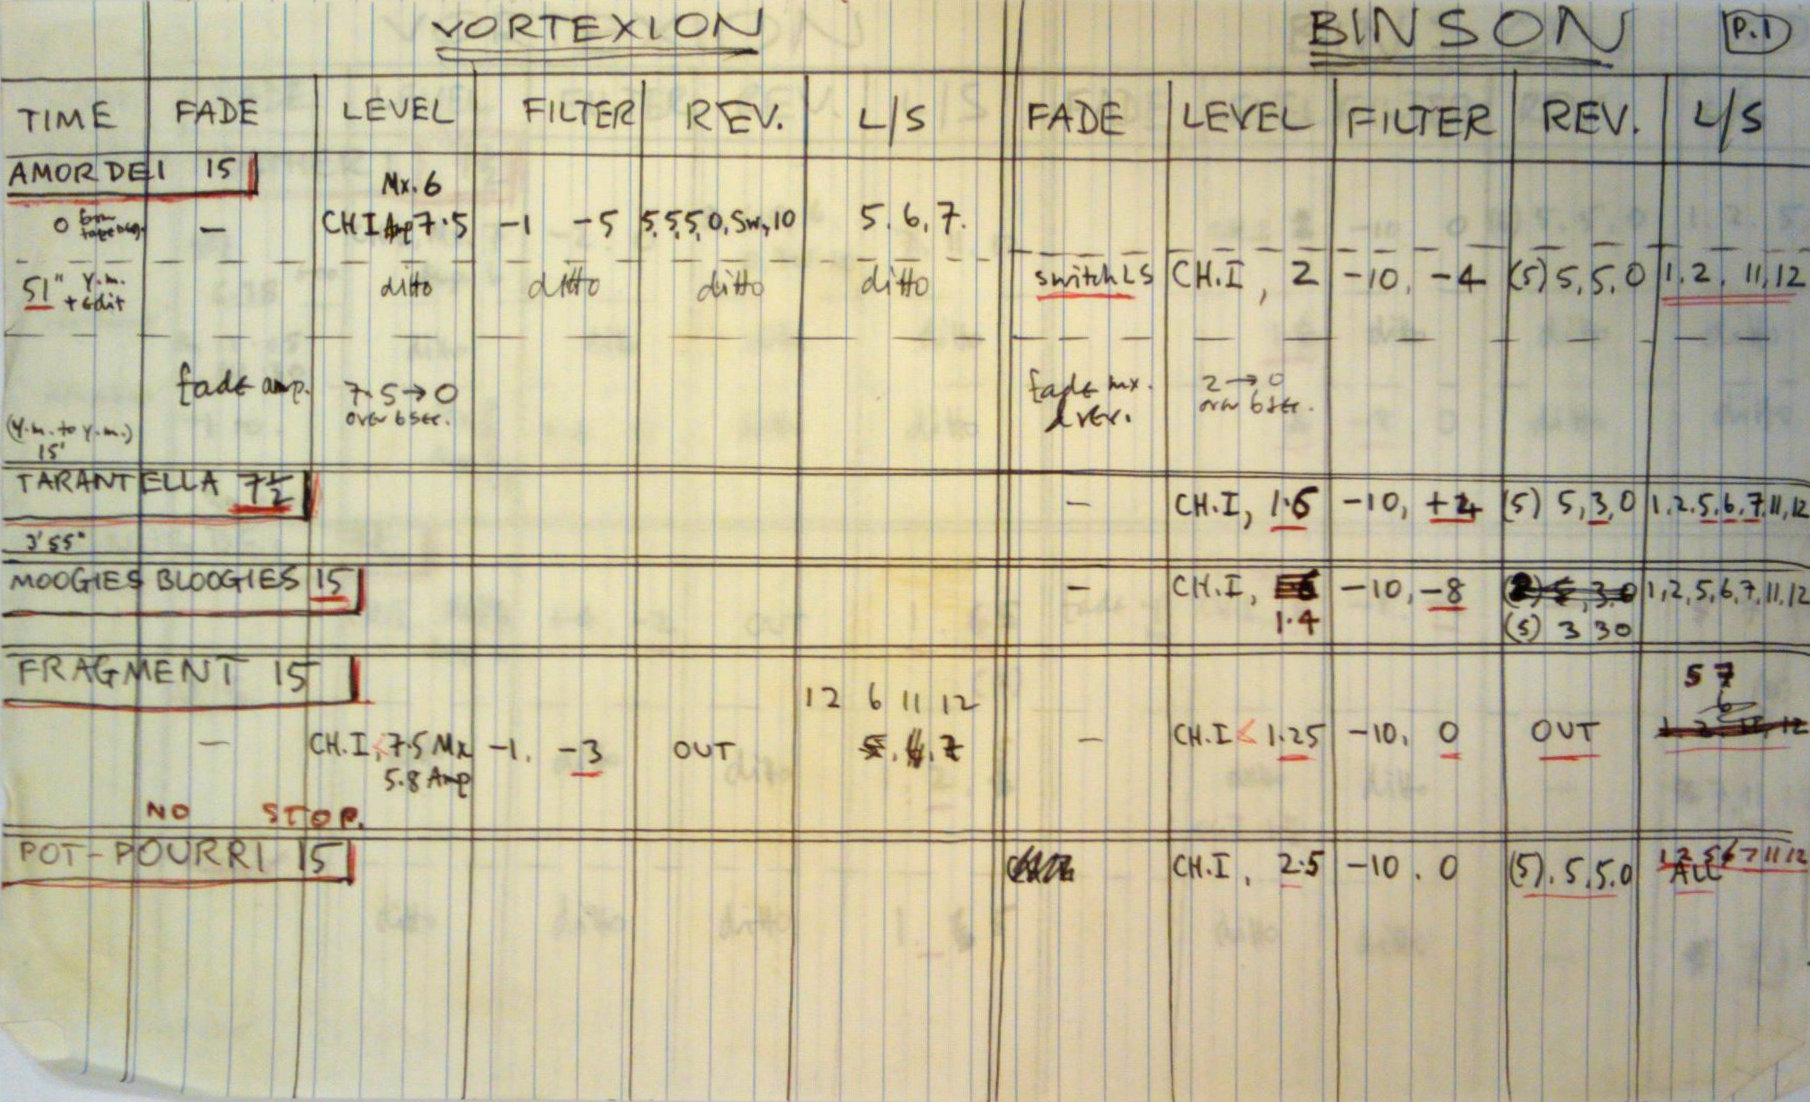 VORTEXION BINSON P.1
TIME FADE LEVEL FILTER REV. L/S FADE LEVEL FILTER REV. L/S
AMOR DEI 15
Mx. 6
0 from tape beg. — CH I Amp 7.5 -1 -5 5,5,5,0, Sw, 10 5. 6, 7.
51" Y.m. + edit ditto ditto ditto ditto switch LS CH.I, 2 -10, -4 (5) 5, 5, 0 1, 2, 11, 12
fade amp. 7.5 → 0 over 6 sec. fade mx. & rev. 2 → 0 over 6 sec.
(Y.m. to Y.m.)
15'
TARANTELLA 7½ — CH.I, 1.6 -10, +4 (5) 5, 3, 0 1, 2, 5, 6, 7, 11, 12
3'55"
MOOGIES BLOOGIES 15 — CH.I, -10, -8 3 0 1, 2, 5, 6, 7, 11, 12
1.4 (5) 3 3 0
FRAGMENT 15 5 7
12 6 11 12 6
— CH.I, 7.5 Mx -1, -3 OUT 7 — CH.I < 1.25 -10, 0 OUT 1 2 11, 12
5.8 Amp
NO STOP.
POT-POURRI 15 CH.I, 2.5 -10. 0 (5). 5, 5.0 1 2 5 6 7 11 12
ALL